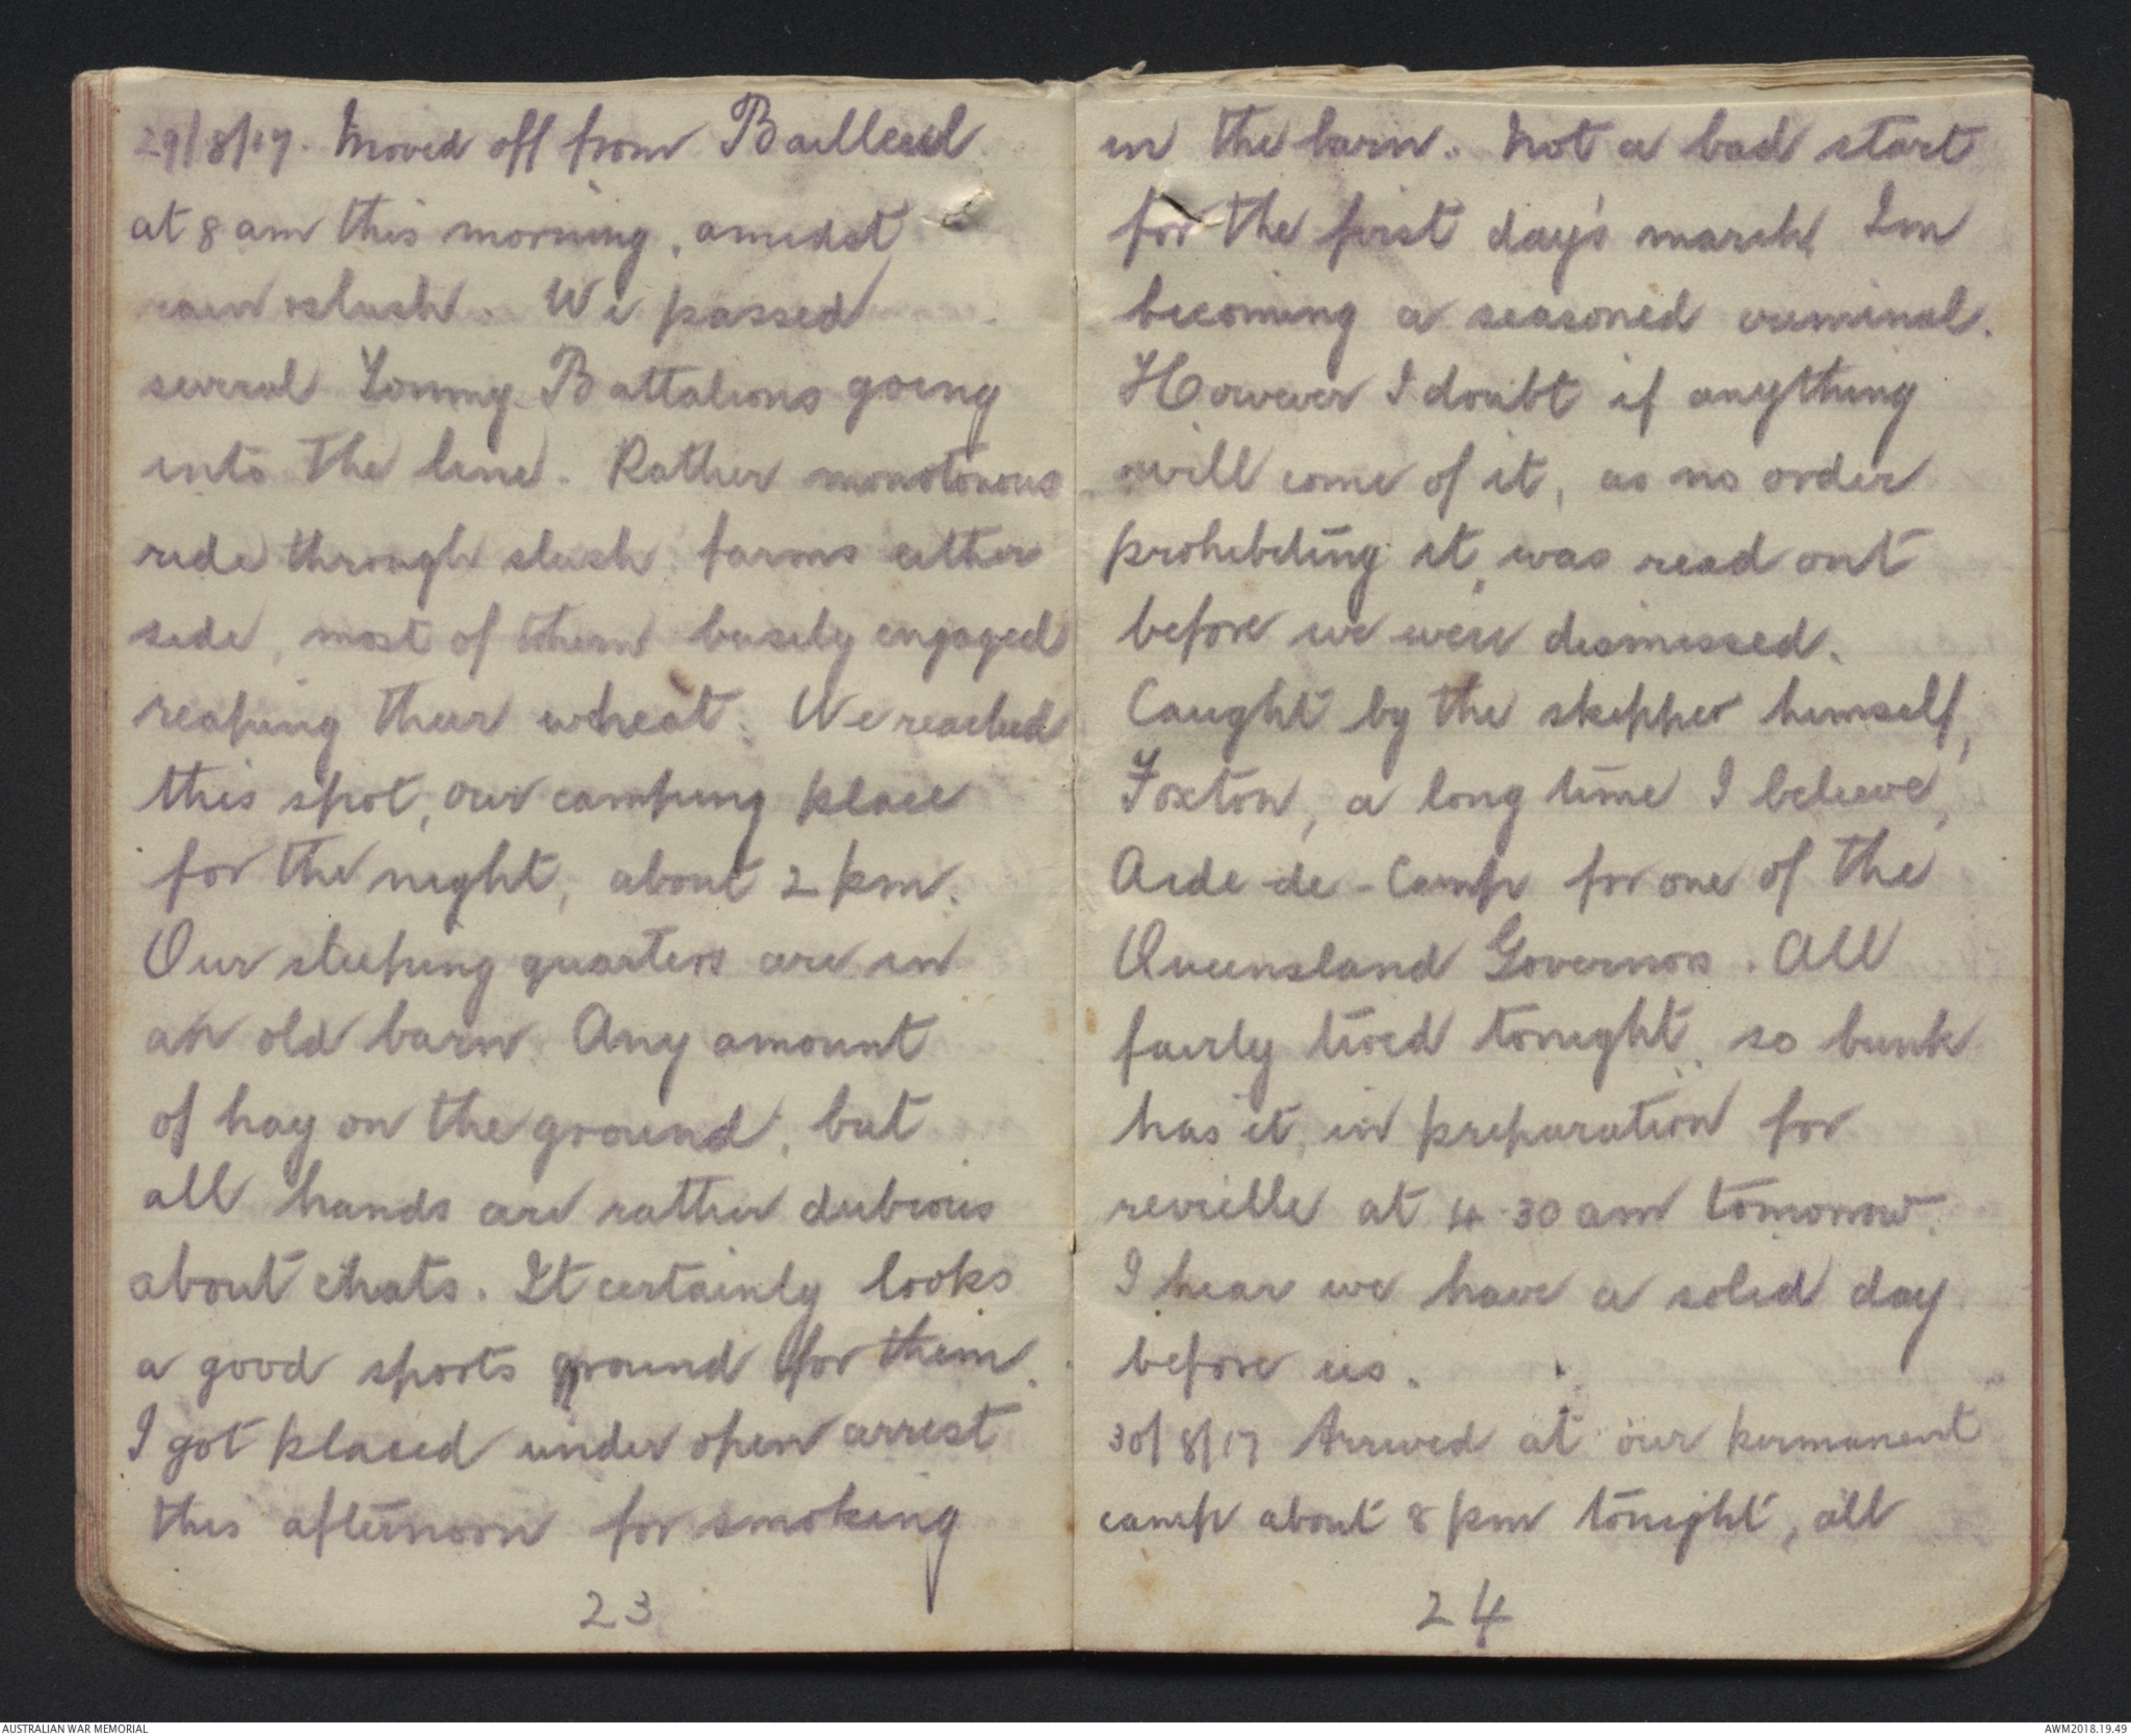 29/8/17. Moved off from Bailleul
at 8 am this morning, amidst
rain & slush. We passed
several Tommy Battalions going
into the line. Rather monotonous
ride through slush farms either
side, most of them busily engaged
reaping their wheat. We reached
this spot, our camping place
for the night, about 2 pm.
Our sleeping quarters are in
an old barn. Any amount
of hay on the ground, but
all hands are rather dubious
about chats. It certainly looks
a good sports ground for them.
I got placed under open arrest
this afternoon for smoking
23
in the barn. Not a bad start
for the first day's march Im
becoming a seasoned criminal.
However I doubt if anything
will come of it, as no order
prohibiting it, was read out
before we were dismissed.
Caught by the skipper himself,
Foxton, a long time I believe,
Aide-de-Camp for one of the
Queensland Governors. All
fairly tired tonight, so bunk
has it, in preparation for
revielle at 4.30 am tomorrow.
I hear we have a solid day
before us.
30/8/17 Arrived at our permanent
camp about 8 pm tonight, all
24
AUSTRALIAN WAR MEMORIAL
AWM2018.19.49